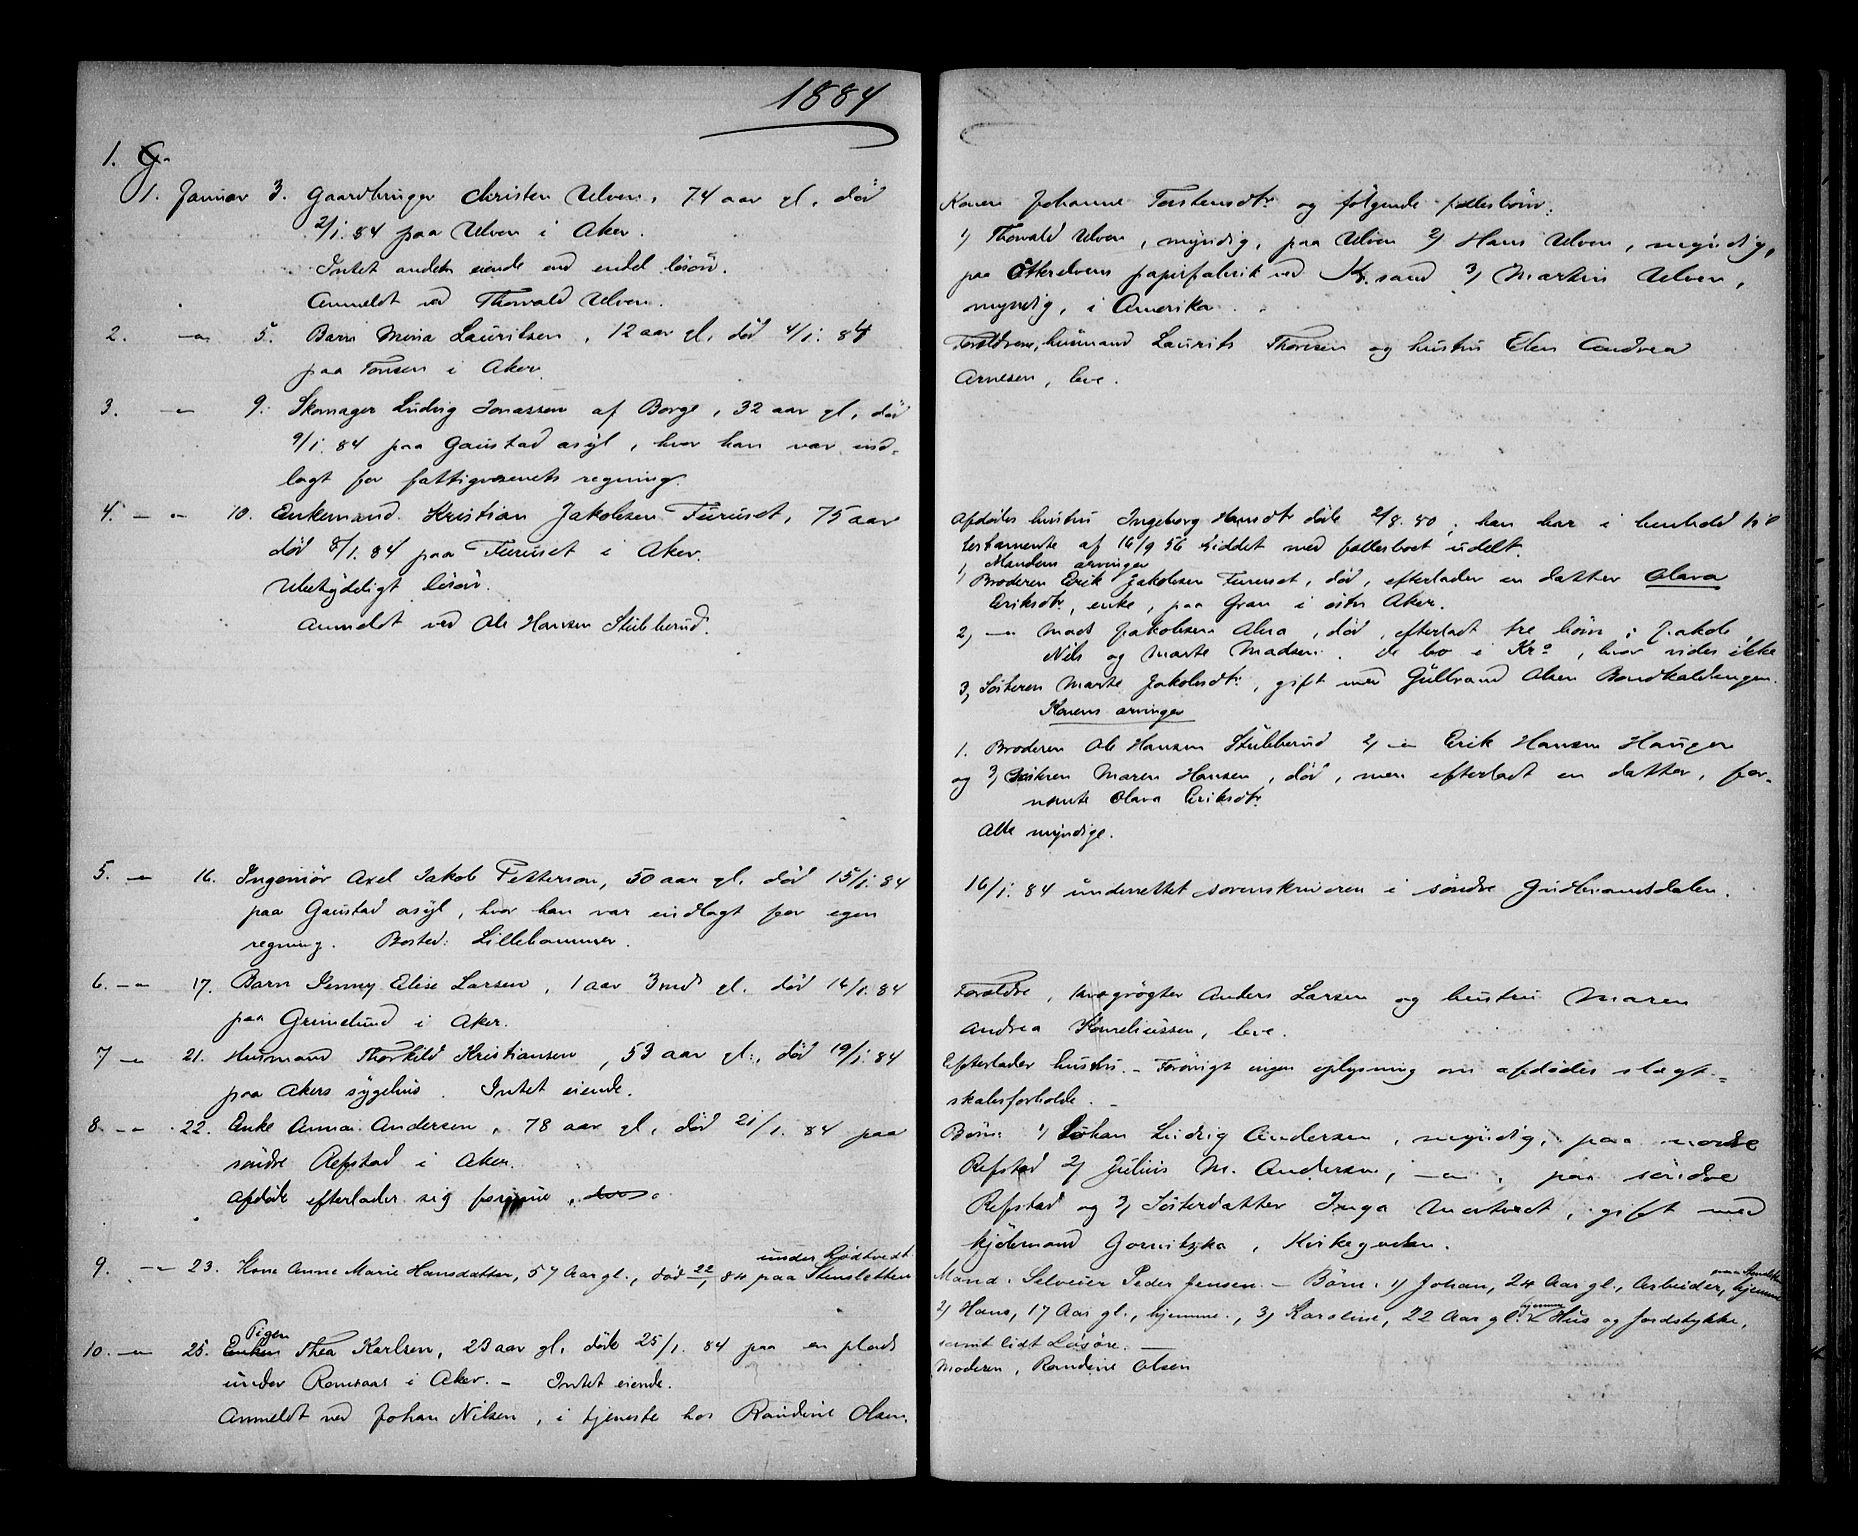 1884
1.
1. Januar 3. Gaardbruger Christen Ulven, 74 aar gl. død
2/1. 84 paa Ulven i Aker.
Intet andet eiende end endel løsøre.
Anmeldt ved Thorvald Ulven.
2. -"- 5. Barn Mina Lauritsen, 12 aar gl. død 4/1. 84
paa Tonsen i Aker.
3. -"- 9. Skomager Ludvig Jonassen af Borge, 32 aar gl. død
9/1. 84 paa Gaustad asyl, hvor han var ind-
lagt for fattigvæsenets regning.
4. -"- 10. Enkemand Kristian Jakobsen Furuset, 75 aar
død 8/1. 84 paa Furuset i Aker.
Ubetydeligt løsøre.
Anmeldt ved Ole Hansen Stubberud.
5. -"- 16. Ingeniør Axel Jakob Petterson, 50 aar gl. død 15/1. 84
paa Gaustad asyl, hvor han var indlagt for egen
regning. Bosted: Lillehammer.
6. -"- 17. Barn Jenny Elise Larsen, 1 aar 3 md gl. død 14/1. 84
paa Grimelund i Aker.
7 -"- 21. Husmand Thorkild Kristiansen, 53 aar gl., død 19/1. 84
paa Akers sygehus. Intet eiende.
8. -"- 22. Enke Anna Andersen, 78 aar gl, død 21/1. 84 paa
søndre Refstad i Aker.
Afdøde efterlader sig formue
under Rødtvedt
9. -"- 23. Kone Anne Marie Hansdatter, 57 Aar gl., død 22/1 84 paa Stensletten
Pigen
10. -"- 25. Enken Thea Karlsen, 23 aar gl. døde 25/1. 84 paa en plads
under Romsaas i Aker. - Intet eiende.
Anmeldt ved Johan Nilsen, i tjeneste hos Randine Olsen.
Konen Johanne Torstensdtr og følgende fællesbørn:
1) Thorvald Ulven, myndig, paa Ulven 2) Hans Ulven, myndig,
paa Otterelvens papirfabrik ved Kr.sand 3) Martin Ulven,
myndig, i Amerika.
Forældrene, husmand Laurits Thoresen og hustru Elen Andrea
Arnesen, leve.
Afdødes hustru Ingeborg Hansdtr døde 2/8. 80; han har i henhold til
testamente af 16/9 56 siddet med fællesboet udelt.
Mandens arvinger
1) Broderen Erik Jakobsen Furuset, død, efterlader en datter Olava
Eriksdtr, enke, paa Gran i østre Aker.
2) -"- Mads Jakobsen Alna, død, efterladt tre børn: Jakob,
Nils og Marte Madsen. De bo i Kra, hvor vides ikke
3) Søsteren Marte Jakobsdtr, gift med Gulbrand Olsen Bondkaldengen.
Konens arvinger
1. Broderen Ole Hansen Stubberud 2) -"- Erik Hansen Haugen
og 3) Søsteren Maren Hansen, død, men efterladt en datter, for-
nævnte Olava Eriksdtr
Alle myndige.
16/1. 84 underrettet sorenskriveren i søndre Gudbrandsdalen.
Forældre, krøgrøgter Anders Larsen og hustru Maren
Andrea Korneliussen, leve.
Efterlader hustru. - Forøvrigt ingen oplysning om afdødes slægt-
skabsforholde. -
Børn: 1) Johan Ludvig Andersen, myndig, paa nordre
Refstad 2) Julius M. Andersen, -"-, paa søndre
Refstad og 3) Søsterdatter Inga Mortvedt, gift med
kjøbmand Gornitzka, Kirkegaden.
Mand: Selveier Peder Jensen. - Børn: 1) Johan, 24 Aar gl., Arbeider, hjemme
2) Hans, 17 Aar gl., hjemme., 3) Karoline, 22 Aar gl. hjemme Hus og Jordstykke,
samt lidt Løsøre. -
Moderen, Randine Olsen